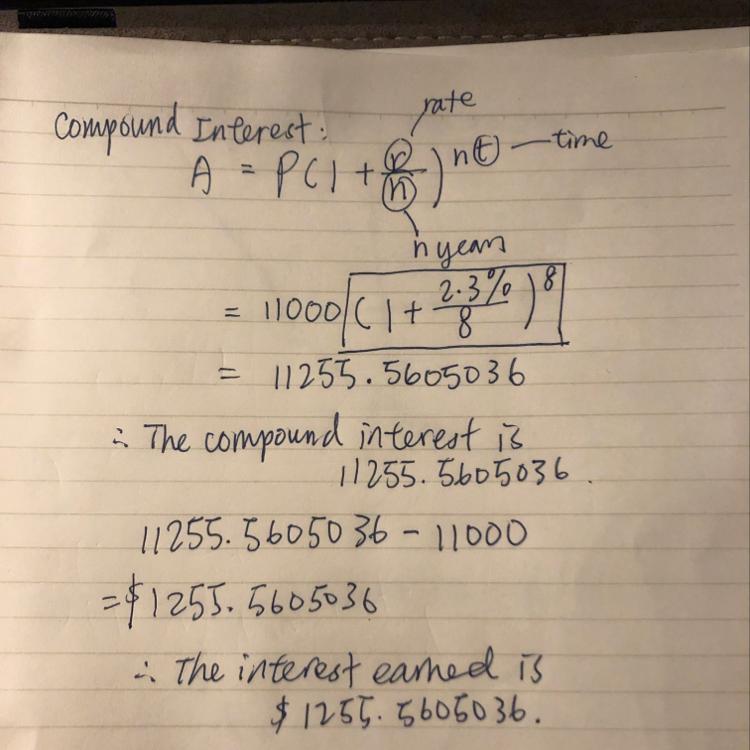 rate
Compound Interest:
A = P(1 + r/n)^nt — time
n years
= 11000 (1 + 2.3%/8)^8
= 11255.5605036
∴ The compound interest is
11255.5605036.
11255.5605036 - 11000
= $1255.5605036
∴ The interest earned is
$1255.5605036.